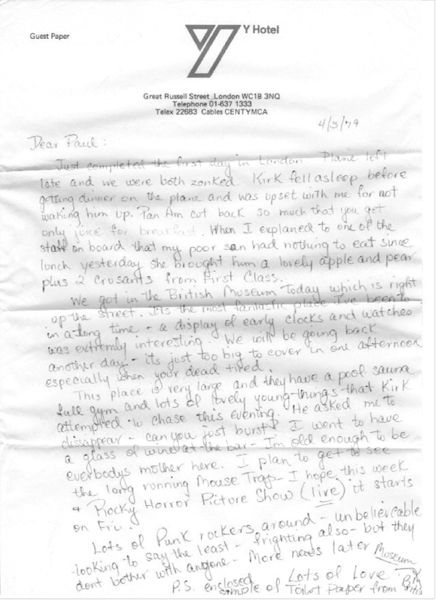 Guest Paper
Y Hotel
Great Russell Street, London WC1B 3NQ
Telephone 01-637 1333
Telex 22683 Cables CENTYMCA
4/3/79
Dear Paul:
Just completed the first day in London. Plane left
late and we were both zonked. Kirk fell asleep before
getting dinner on the plane and was upset with me for not
waking him up. Pan Am cut back so much that you get
only juice for breakfast. When I explained to one of the
staff on board that my poor son had nothing to eat since
lunch yesterday she brought him a lovely apple and pear
plus 2 crusants from First Class.
We got in the British Museum today which is right
up the street. Its the most fantastic place I've been to
in a long time - a display of early clocks and watches
was extremly interesting. We will be going back
another day - its just too big to cover in one afternoon
especially when your dead tired.
This place is very large and they have a pool sauna
full gym and lots of lovely young things that Kirk
attempted to chase this evening. He asked me to
disappear - can you just burst? I went to have
a glass of wine at the bar - I'm old enough to be
everybodys mother here. I plan to get to see
the long running Mouse Trap - I hope this week
& Rocky Horror Picture Show (live) it starts
on Fri.
Lots of Punk rockers around - unbelievable
looking to say the least - frighting also - but they
dont bother with anyone. More news later
Lots of Love
P.S. enclosed sample of Toilet Paper from British
Museum